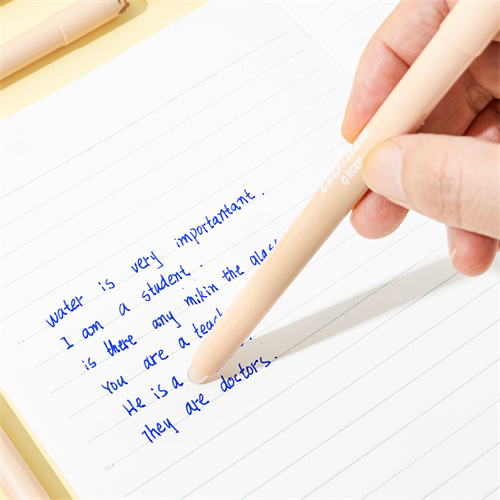 water is very importantant.
I am a student.
is there any mikin the glass
You are a teach
He is a
They are doctors.